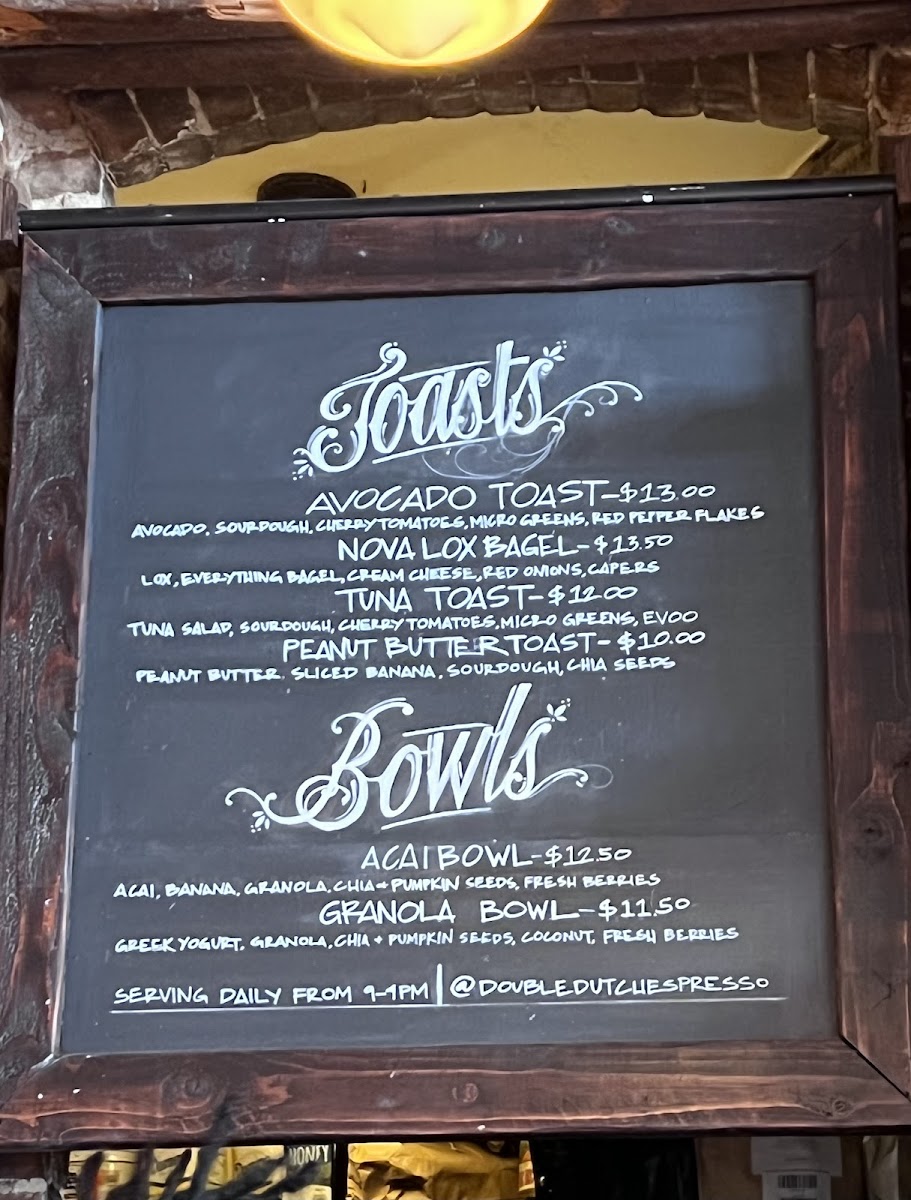 Toasts
AVOCADO TOAST-$13.00
AVOCADO, SOURDOUGH, CHERRY TOMATOES, MICRO GREENS, RED PEPPER FLAKES
NOVA LOX BAGEL-$13.50
LOX, EVERYTHING BAGEL, CREAM CHEESE, RED ONIONS, CAPERS
TUNA TOAST-$12.00
TUNA SALAD, SOURDOUGH, CHERRY TOMATOES, MICRO GREENS, EVOO
PEANUT BUTTER TOAST-$10.00
PEANUT BUTTER, SLICED BANANA, SOURDOUGH, CHIA SEEDS
Bowls
ACAI BOWL-$12.50
ACAI, BANANA, GRANOLA, CHIA + PUMPKIN SEEDS, FRESH BERRIES
GRANOLA BOWL-$11.50
GREEK YOGURT, GRANOLA, CHIA + PUMPKIN SEEDS, COCONUT, FRESH BERRIES
SERVING DAILY FROM 9-4PM | @DOUBLEDUTCHESPRESSO
HONEY